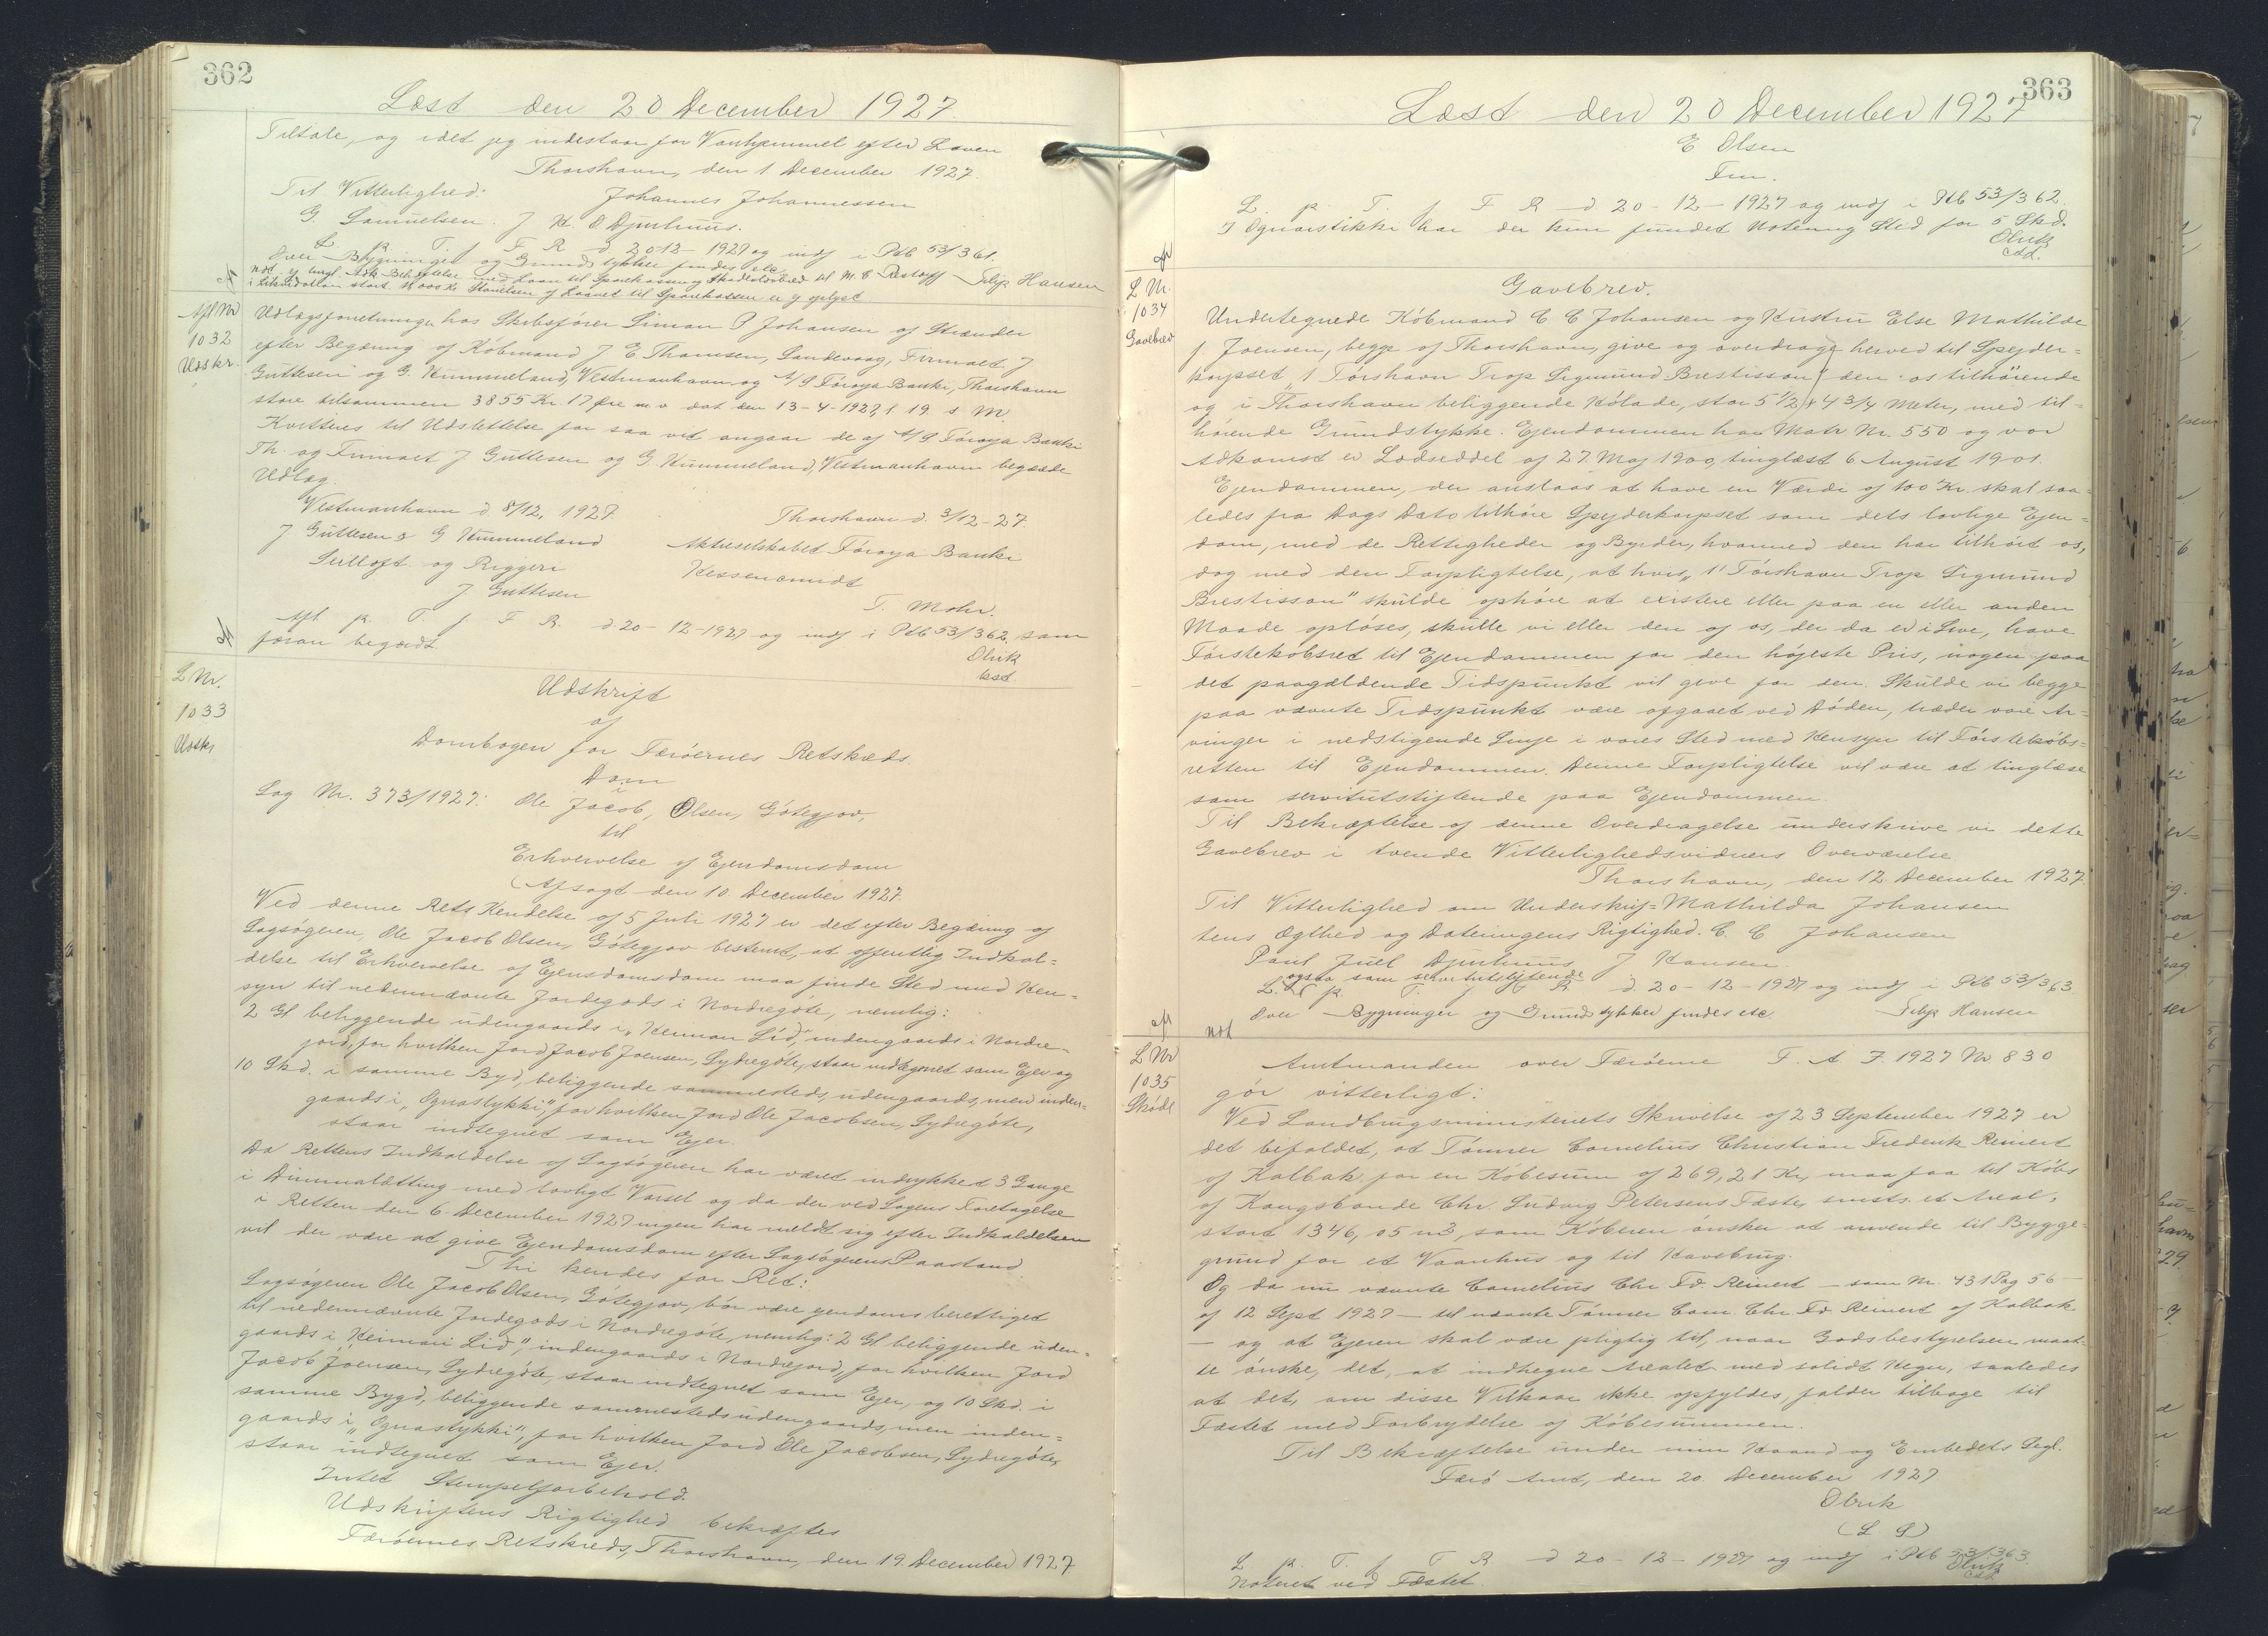 362
Læst den 20 December 1927.
Tiltale, og idet jeg indestaar for Vanhjemmel efter Loven
Thorshavn, den 1 December 1927.
Til Vitterlighed: Johannes Johannessen
G. Samuelsen. J. H. O Djurhuus.
L. p. T. f. F R d 20-12-1927 og indf i Ptb 53/361.
Over Bygninger og Grundstykker findes etc.
Filip Hansen
Afl Nr
1032
Udskr.
Udlægsforretninger hos Skibsfører Simon P Johansen af Strænder
efter Begæring af Købmand J E Thomsen, Sandevaag, Firmaet J
Guttesen og G. Kummeland, Vestmanhavn og A/S Føroya Banki, Thorshavn
store tilsammen 3855 Kr. 17 Øre m.v dat den 13-4-1927, l 19 s M
Kvitteres til Udslettelse for saa vidt angaar de af A/S Føroya Banki
Th. og Firmaet J. Guttesen og G. Kummeland, Vestmanhavn begærede
Udlæg.
Vestmanhavn d 8/12, 1927. Thorshavn d. 3/12-27.
J Guttesen & G Kummeland Aktieselskabet Føroya Banki
Seilloft og Riggeri
J Guttesen T. Mohr.
Afl. p. T. f. F. R. d 20-12-1927 og indf i Ptb 53/362, som
foran begært.
Olrik
cst
L Nr.
1033
Udskr
Udskrift
af
Dombogen for Færøernes Retskreds.
Dom
i
Sag Nr. 373/1927: Ole Jacob, Olsen, Gøtegjov,
til
Erhvervelse af Ejendomsdom
(Afsagt den 10. December 1927.
Ved denne Rets Kendelse af 5 Juli 1927 er det efter Begæring af
Sagsøgeren, Ole Jacob Olsen, Gøtegjov bestemt, at offentlig Indkal=
delse til Erhvervelse af Ejendomsdom maa finde Sted med Hen=
syn til nedennævnte Jordegods i Nordregøte, nemlig:
2 Gl beliggende udengaards i „Heiman Lid", indengaards i Nordre=
jord, for hvilken Jord Jacob Joensen, Sydregøte, staar indtegnet som Ejer og
10 Skd. i samme Bygd, beliggende sammesteds, udengaards, men inden=
gaards i „Ognastykki", for hvilken Jord Ole Jacobsen, Sydregøte,
staar indtegnet som Ejer.
Da Rettens Indkaldelse af Sagsøgeren har været indrykket 3 Gange
i Dimmalætting med lovligt Varsel og da der ved Sagens Foretagelse
i Retten den 6. December 1927 ingen har meldt sig efter Indkaldelsen
vil der være at give Ejendomsdom efter Sagsøgerens Paastand
Thi kendes for Ret:
Sagsøgeren Ole Jacob Olsen, Gøtegjov, bør være ejendomsberettiget
til nedennævnte Jordegods i Nordregøte, nemlig: 2 Gl. beliggende uden=
gaards i „Heiman Lid", indengaards i Nordrejord, for hvilken Jord
Jacob Joensen, Sydregøte, staar indtegnet som Ejer, og 10 Skd. i
samme Bygd, beliggende sammesteds udengaards, men inden=
gaards i „Ognastykki", for hvilken Jord Ole Jacobsen, Sydregøte,
staar indtegnet som Ejer.
Intet Stempelforbehold.
Udskriftens Rigtighed bekræftes
Færøernes Retskreds, Thorshavn, den 19. December 1927
363
Læst den 20 December 1927
E Olsen
Fm.
L. p. T. f. F R d 20-12-1927 og indf i Ptb 53/362.
I Ognastikki har der kun fundet Notering Sted for 5 Skd.
Olrik
cst.
L Nr.
1034
Gavebrev
Gavebrev.
Undertegnede Købmand C C Johansen og Hustru Else Mathilde
f Joensen, begge af Thorshavn, give og overdrage herved til Spejder=
korpset „1 Tórshavn Trop Sigmund Brestisson" den os tilhørende
og i Thorshavn beliggende Kølade, stor 5 1/2 x 4 3/4 Meter, med til=
hørende Grundstykke. Ejendommen har Matr. Nr. 550 og vor
Adkomst er Lodseddel af 27. Maj 1900, tinglæst 6 August 1901.
Ejendommen, der anslaas at have en Værdi af 100 Kr. skal saa=
ledes fra Dags Dato tilhøre Spejderkorpset som dets lovlige Ejen=
dom, med de Rettigheder og Byrder, hvormed den har tilhørt os,
dog med den Forpligtelse, at hvis „1' Tórshavn Trop Sigmund
Brestisson" skulde ophøre at existere eller paa en eller anden
Maade opløses, skulle vi eller den af os, der da er i Live, have
Førstekøbsret til Ejendommen for den højeste Pris, nogen paa
det paagældende Tidspunkt vil give for den. Skulde vi begge
paa nævnte Tidspunkt være afgaaet ved Døden, træder vore Ar=
vinger i nedstigende Linje i vores Sted med Hensyn til Førstekøbs=
retten til Ejendommen. Denne Forpligtelse vil være at tinglæse
som servitutstiftende paa Ejendommen.
Til Bekræftelse af denne Overdragelse underskrive vi dette
Gavebrev i tvende Vitterlighedsvidners Overværelse
Thorshavn, den 12 December 1927.
Til Vitterlighed om Underskrif= Mathilda Johansen
tens Ægthed og Dateringens Rigtighed. C C Johansen
Poul Juel Djurhuus J Hansen
ogsaa som servitutstiftende
L. p. T. f. F R d 20-12-1927 og indf i Ptb 53/363
Over Bygninger og Grundstykker findes etc. Filip Hansen
not
L Nr
1035
Skøde
Amtmanden over Færøerne F. A. J. 1927 Nr 830
gør vitterligt:
Ved Landbrugsministeriets Skrivelse af 23 September 1927 er
det befalet, at Tømrer Cornelius Christian Frederik Reinert
af Kalbak for en Købesum af 269,21 Kr, maa faa til Købs
af Kongsbonde Chr. Ludvig Petersens Fæste, smsts. et Areal,
stort 1346,05 m2, som Køberen ønsker at anvende til Bygge=
grund for et Vaanhus og til Havebrug.
Og da nu nævnte Cornelius Chr. Fr. Reinert — som Nr. 431 Pag 56 —
af 12 Sept 1927 — til nævnte Tømrer Corn. Chr Fr Reinert af Kalbak
— og at Ejeren skal være pligtig til, naar Godsbestyrelsen maat=
te ønske, det, at indhegne Arealet med solidt Hegn, saaledes
at det, om disse Vilkaar ikke opfyldes, falder tilbage til
Fæstet med Forbrydelse af Købesummen.
Til Bekræftelse under min Haand og Embedets Segl.
Færø Amt, den 20. December 1927
Olrik
(L S)
L. p. T. f. F R d 20-12-1927 og indf i Ptb 53/363.
Noteret ved Fæstet.
Olrik
cst